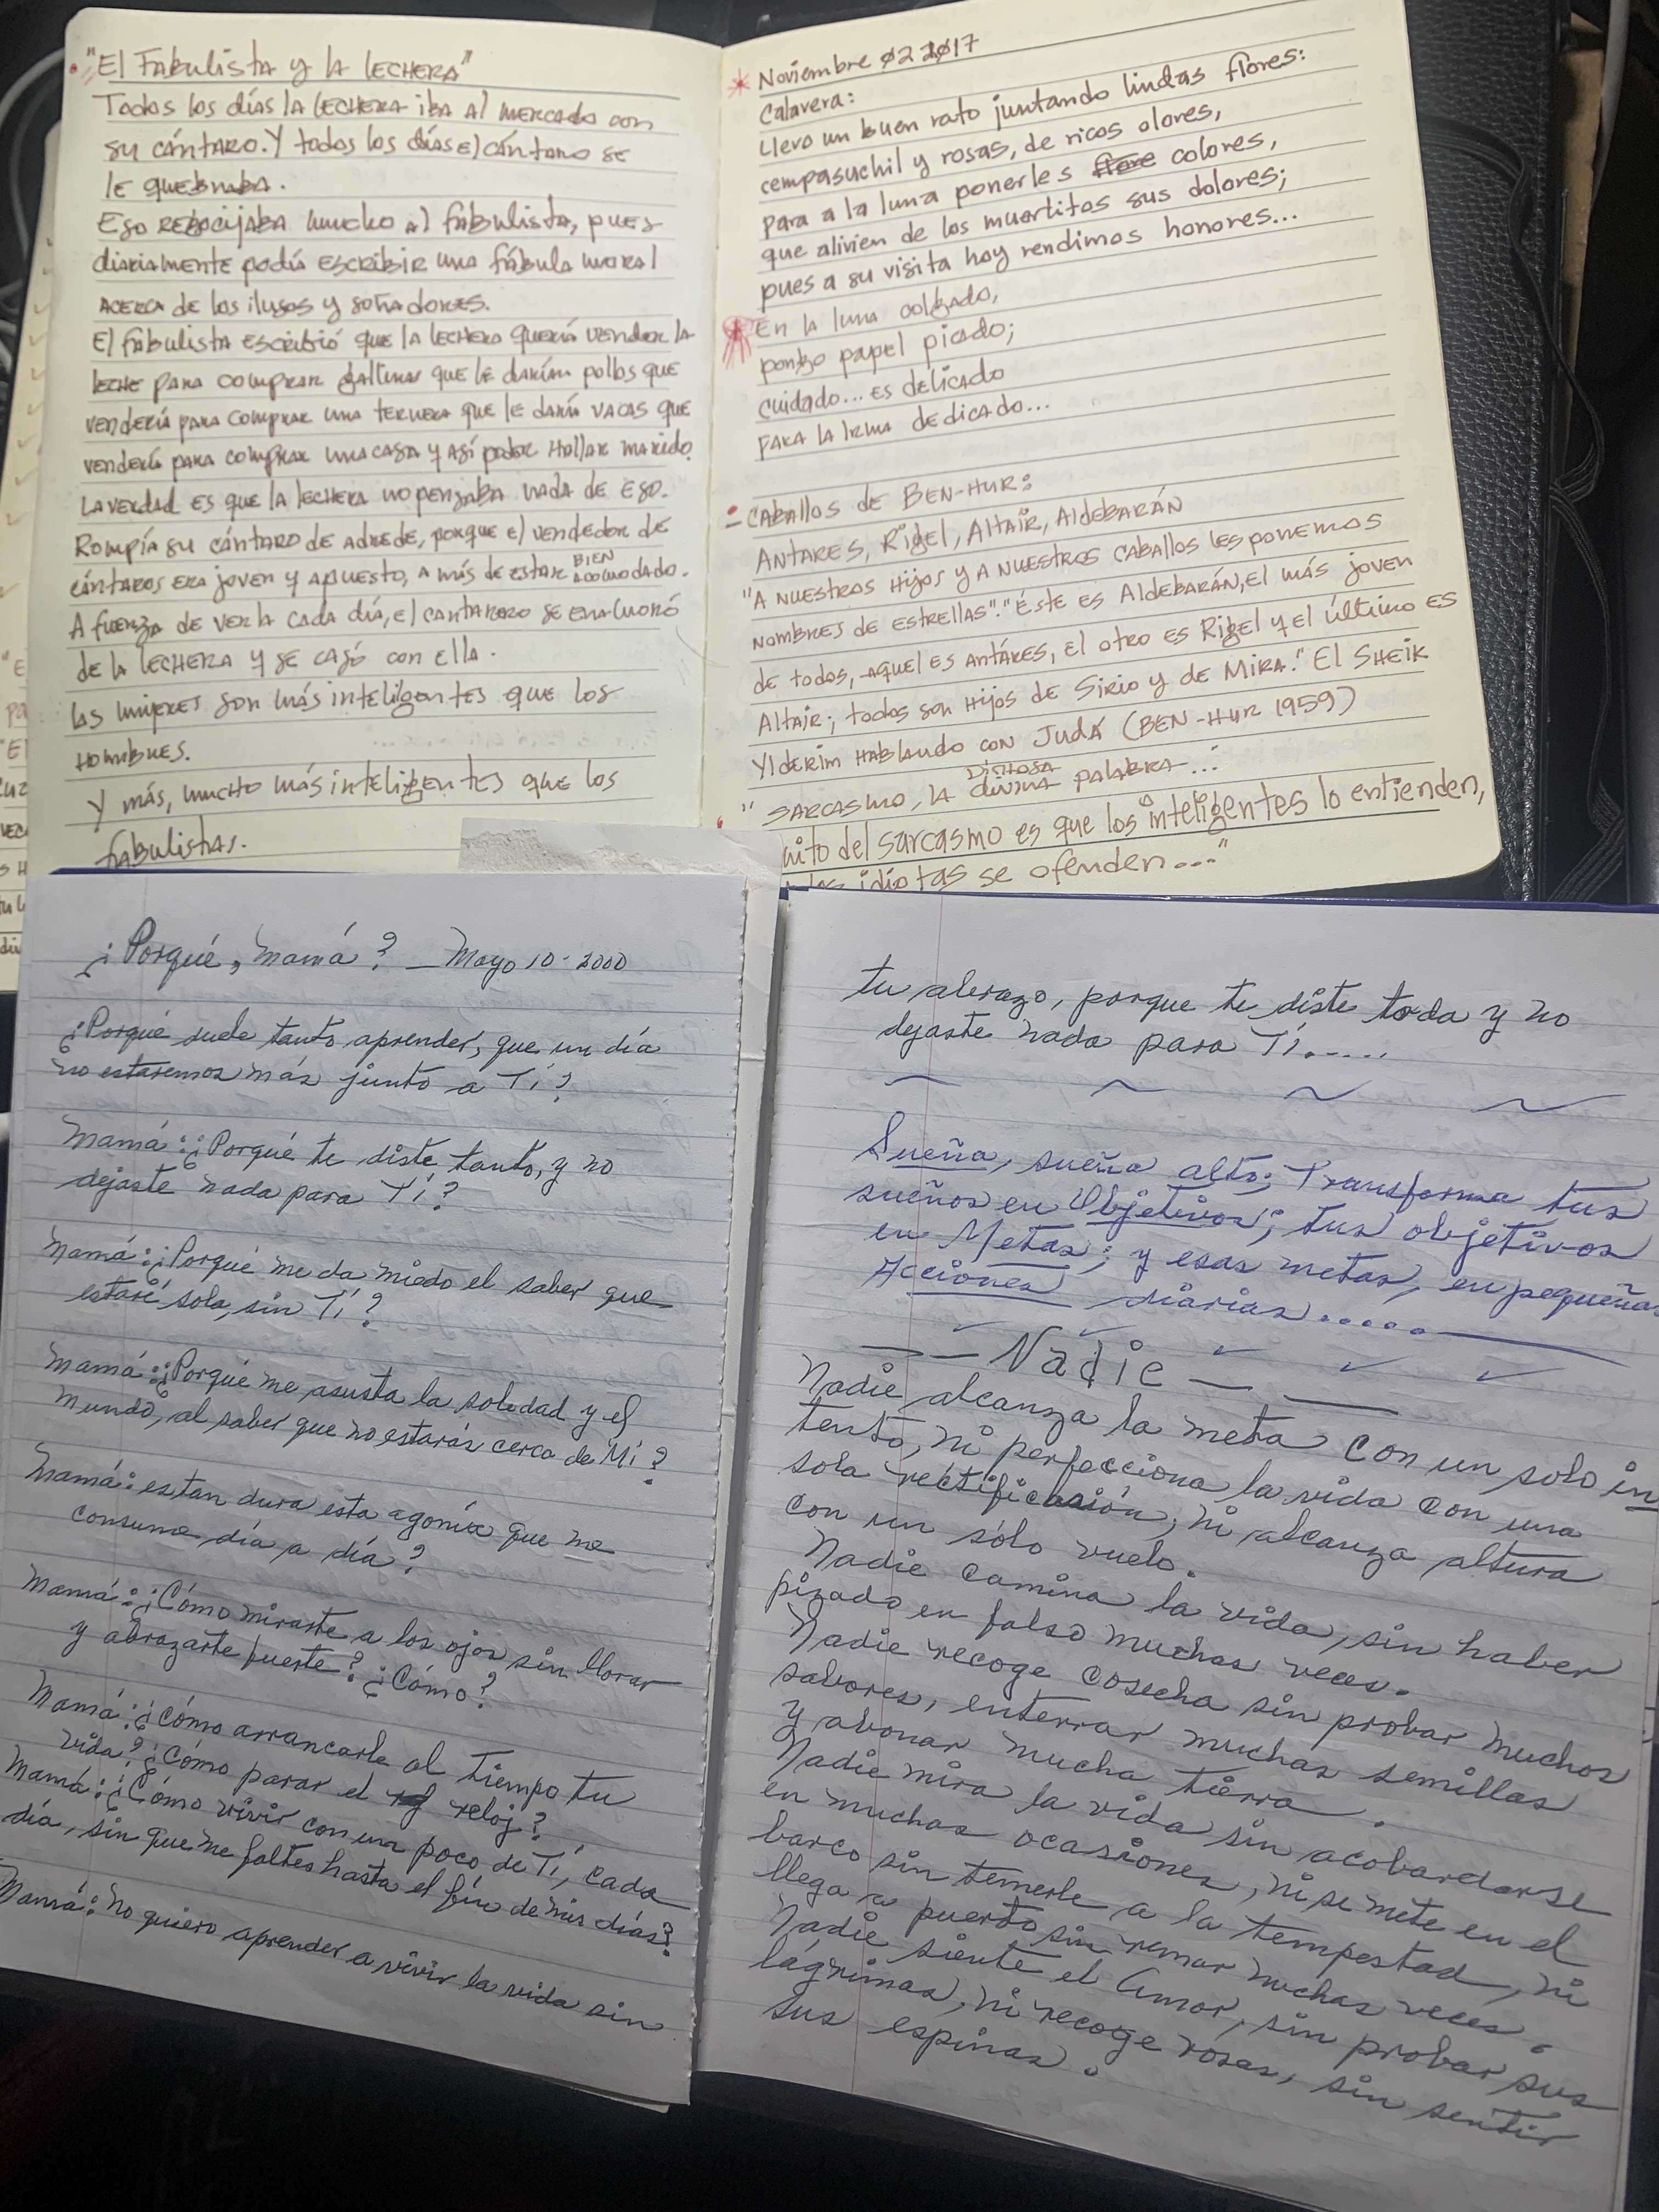 "El Fabulista y la lechera"
Todos los días la lechera iba al mercado con
su cántaro. Y todos los días el cántaro se
le quebraba.
Eso regocijaba mucho al fabulista, pues
diariamente podía escribir una fábula moral
acerca de los ilusos y soñadores.
El fabulista escribió que la lechera quería vender la
leche para comprar gallinas que le darían pollos que
vendería para comprar una ternera que le daría vacas que
vendería para comprar una casa y así poder hallar marido.
La verdad es que la lechera no pensaba nada de eso.
Rompía su cántaro de adrede, porque el vendedor de
cántaros era joven y apuesto, a más de estar BIEN acomodado.
A fuerza de verla cada día, el cantarero se enamoró
de la lechera y se casó con ella.
Las mujeres son más inteligentes que los
hombres.
Y más, mucho más inteligentes que los
fabulistas.
* Noviembre 02 2017
Calavera:
Llevo un buen rato juntando lindas flores:
cempasuchil y rosas, de ricos olores,
para a la luna ponerles colores,
que alivien de los muertitos sus dolores;
pues a su visita hoy rendimos honores...
En la luna colgado,
pongo papel picado;
cuidado... es delicado
para la Irma dedicado...
- Caballos de BEN-HUR:
Antares, Rigel, Altair, Aldebarán
"A nuestros hijos y a nuestros caballos les ponemos
nombres de estrellas". "Éste es Aldebarán, el más joven
de todos, aquel es Antáres, el otro es Rigel y el último es
Altair; todos son hijos de Sirio y de Mira." El Sheik
Ylderim hablando con Judá (BEN-HUR 1959)
" Sarcasmo, la dichosa divina palabra...
nito del sarcasmo es que los inteligentes lo entienden,
los idiotas se ofenden..."
¿Porqué, Mamá? — Mayo 10-2000
¿Porqué duele tanto aprender, que un día
no estaremos más junto a Tí?
Mamá: ¿Porqué te diste tanto, y no
dejaste nada para Tí?
Mamá: ¿Porqué me da miedo el saber que
estaré sola, sin Tí?
Mamá: ¿Porqué me asusta la soledad y el
mundo, al saber que no estarás cerca de Mí?
Mamá: es tan dura esta agonía que me
consume día a día?
Mamá: ¿Cómo mirarte a los ojos sin llorar
y abrazarte fuerte? ¿Cómo?
Mamá: ¿Cómo arrancarle al tiempo tu
vida? ¿Cómo parar el reloj?
Mamá: ¿Cómo vivir con un poco de Tí, cada
día, sin que me faltes hasta el fín de mis días?
Mamá: No quiero aprender a vivir la vida sin
tu abrazo, porque te diste toda y no
dejaste nada para Tí.....
Sueña, sueña alto; Transforma tus
sueños en Objetivos; tus objetivos
en Metas; y esas metas, en pequeñas
Acciones diarias.....
— — Nadie — —
Nadie alcanza la meta con un solo in
tento, ni perfecciona la vida con una
sola rectificación, ni alcanza altura
con un sólo vuelo.
Nadie camina la vida, sin haber
pisado en falso muchas veces.
Nadie recoge cosecha sin probar muchos
sabores, enterrar muchas semillas
y abonar mucha tierra.
Nadie mira la vida sin acobardarse
en muchas ocasiones, ni se mete en el
barco sin temerle a la tempestad, ni
llega a puerto sin remar muchas veces.
Nadie siente el Amor, sin probar sus
lágrimas, ni recoge rosas, sin sentir
sus espinas.